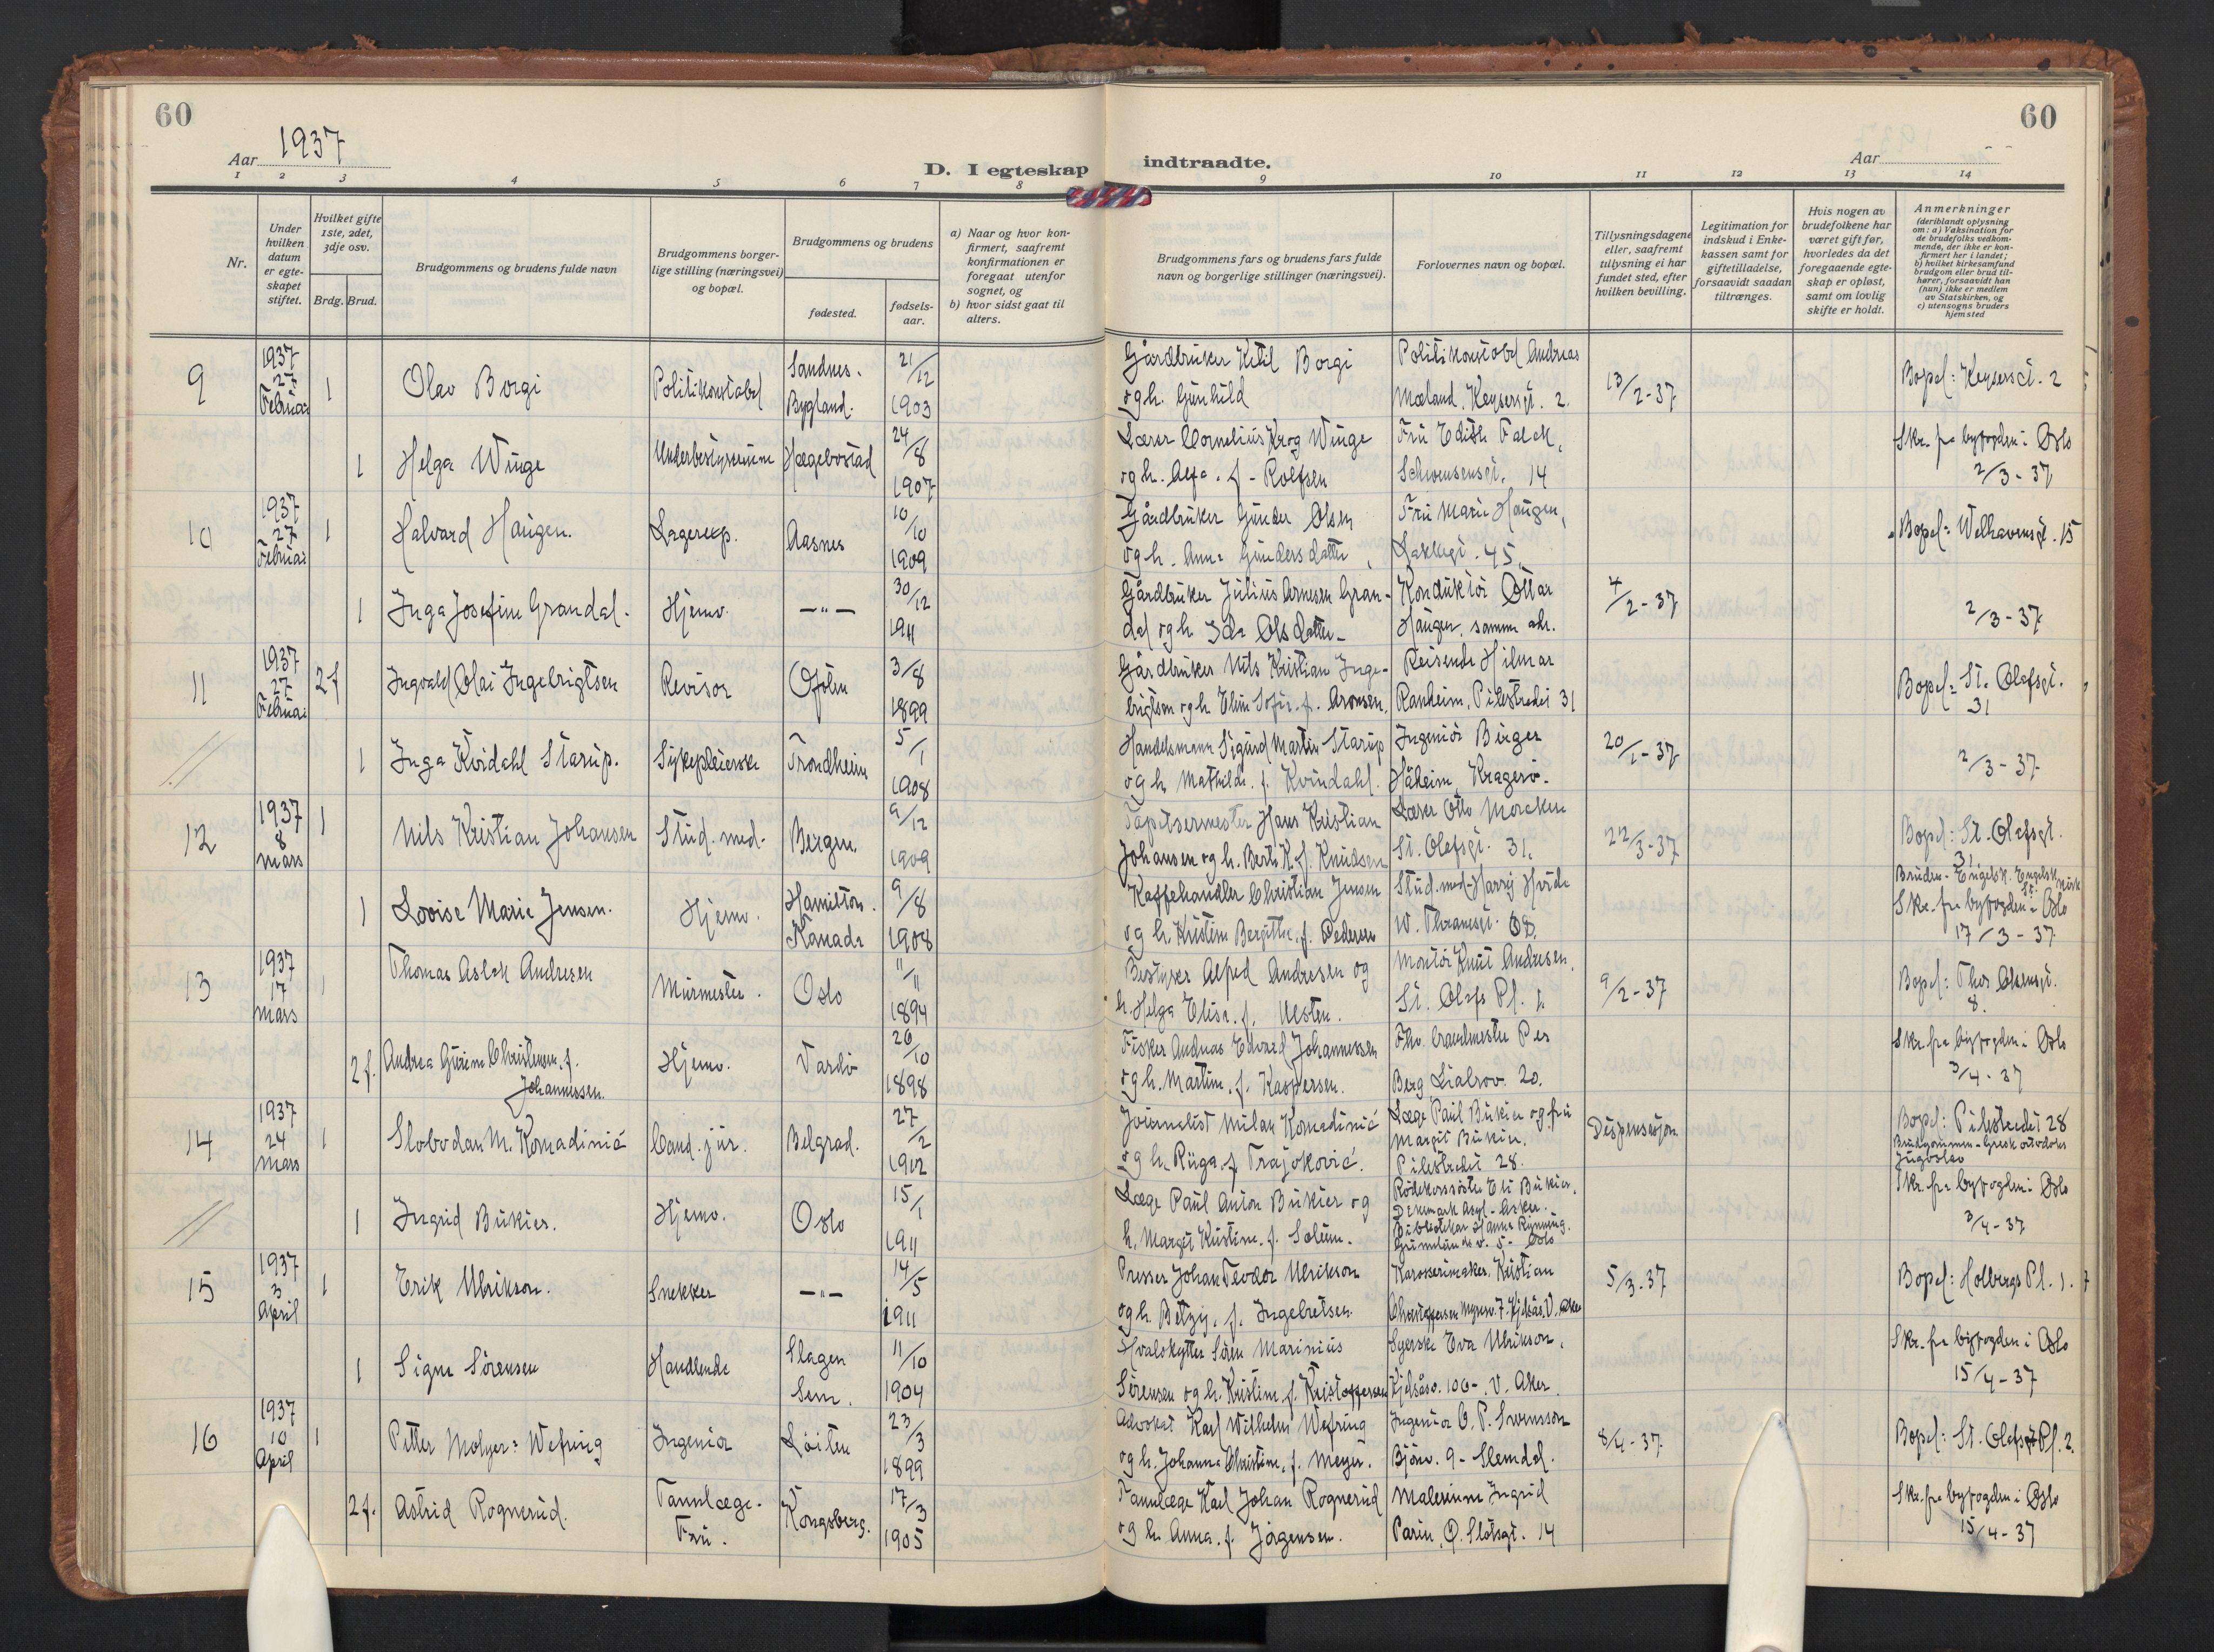 60
60
Aar 1937
D. I egteskap indtraadte.
Aar
1 2 3 4 5 6 7 8 9 10 11 12 13 14
Nr.
Under hvilken datum er egte-skapet stiftet.
Hvilket gifte 1ste, 2det, 3dje osv.
Brdg. Brud.
Brudgommens og brudens fulde navn
Brudgommens borger-lige stilling (næringsvei) og bopæl.
Brudgommens og brudens
fødested.
fødsels-aar.
a) Naar og hvor kon-firmert, saafremt konfirmationen er foregaat utenfor sognet, og
b) hvor sidst gaat til alters.
Brudgommens fars og brudens fars fulde navn og borgerlige stillinger (næringsvei).
Forlovernes navn og bopæl.
Tillysningsdagene eller, saafremt tillysning ei har fundet sted, efter hvilken bevilling.
Legitimation for indskud i Enke-kassen samt for giftetilladelse, forsaavidt saadan tiltrænges.
Hvis nogen av brudefolkene har været gift før, hvorledes da det foregaaende egte-skap er opløst, samt om lovlig skifte er holdt.
Anmerkninger
(deriblandt oplysning om: a) Vaksination for de brudefolks vedkom-mende, der ikke er kon-firmert her i landet;
b) hvilket kirkesamfund brudgom eller brud til-hører, forsaavidt han (hun) ikke er medlem av Statskirken, og
c) utensogns bruders hjemsted
9 1937 27 Februar 1 Olav Borgi Politikonstabel Sandnes. Bygland. 21/12 1903 Gårdbruker Ketil Borgi og h. Gunhild Politikonstabel Andreas Mæland. Keysersgt. 2. 13/2-37 Bopel: Keysersgt. 2
1 Helga Winge Underbestyrerinne Hægebostad 24/8 1907 Lærer Cornelius Krog Winge og h. Alfa. f. Rolfsen Fru Edith Falck, Schwensensgt. 14 Skr. fra byfogden i Oslo 2/3-37
10 1937 27 Februar 1 Halvard Haugen. Lagereksp. Aasnes 10/10 1909 Gårdbruker Gunder Olsen og h. Anne Gundersdatter Fru Marie Haugen, Lakkegt. 45, Bopel: Welhavensgt. 15
1 Inga Josefine Grandal. Hjemv. —"— 30/12 1911 Gårdbruker Julius Arnesen Gran-dal og h. Ida Olsdatter Konduktör Ottar Haugen, samme adr. 4/2-37 2/3-37
11 1937 27 Februar 2 f Ingvald Olai Ingebrigtsen Revisor Ofoten 3/8 1899 Gårdbruker Nils Kristian Inge-brigtsen og h. Elen Sofie. f. Aronsen, Reisende Hilmar Ranheim, Pilestredet 31 Bopel: St. Olafsgt. 31
1 Inga Kvidahl Starup. Sykepleierske Trondheim 5/1 1908 Handelsmann Sigurd Martin Starup og h. Mathilde. f. Kvindahl. Ingeniör Birger Håheim, Kragerö. 20/1-37 2/3-37
12 1937 8 mars 1 Nils Kristian Johansen Stud. med. Bergen 9/12 1909 Tapetsermester Hans Kristian Johansen og h. Berta K. f. Knudsen Lærer Otto Morcken St. Olafsgt. 31. 22/3-37 Bopel: St. Olafsgt. 31
1 Lovise Marie Jensen. Hjemv. Hamilton. Kanada 9/8 1908 Kaffehandler Christian Jensen og h. Kristine Bergitte. f. Pedersen Stud. med. Harry Hvide W. Thranesgt. Bruden - Engelsk. Skr. fra byfogden i Oslo 17/3-37
13 1937 17 mars 1 Thomas Aslak Andresen Murmester. Oslo 11/11 1894 Bestyrer Alfred Andresen og h. Helga Elise. f. Montör Knut Andresen, St. Olafs Pl. 1. 9/2-37 Bopel: Thor Olsensgt. 8.
2 f. Andrea Christensen. f. Johannessen. Hjemv. Vardö 26/10 1898 Fisker Andreas Edvard Johannessen og h. Martine. f. Kaspersen. Fhv. brandmester Per Berg Liabrov. 20. Skr. fra byfogden i Oslo 3/4-37
14 1937 24 mars 1 Slobodan M. Komadinić Cand. jur. Belgrad. 27/2 1912 Journalist Milan Komadinić og h. Ruga. f. Trajković. Læge Paul Bukier og fru Margit Bukier. Pilestredet 28. Dispensasjon. Bopel: Pilestredet 28 Brudgommen - Gresk ortodoks Jugoslav
1 Ingrid Bukier. Hjemv. Oslo 15/1 1911 Læge Paul Anton Bukier og h. Margit Kristine. f. Solum. Rödekorssöster Eli Bukier, Dikemark Asyl - Asker. Bibliotekar Hanna Rynning. Oslo Skr. fra byfogden i Oslo 3/4-37
15 1937 3 April 1 Erik Ulrikson. Snekker —"— 14/5 1911 Presser Johan Teodor Ulrikson og h. Betzy. f. Ingebretsen. Karosserimaker. Kristian 5/3-37 Bopel: Holbergs Pl. 1.
1 Signe Sörensen Handlende Slagen Sem. 11/10 1904 Hvalskytter Sören Marinius Sörensen og h. Kristine f. Kristoffersen Syerske Eva Ulrikson, Kjelsåsv. 106 -, V. Aker. Skr. fra byfogden i Oslo 15/4-37
16 1937 10 April 1 Petter Molyer: Wefring Ingeniör Löiten 23/3 1899 Advokat Karl Wilhelm Wefring og h. Johanne Christine. f. Meyer. Ingeniör O. P. Svensson Björnv. 9 - Slemdal. 8/4-37 Bopel: St. Olafs Pl. 2.
2 f. Astrid Rognerud. Tannlæge. Fru. Kongsberg. 17/3 1905 Tannlæge Karl Johan Rognerud og h. Anna. f. Jörgensen. Malerinne Ingrid Parin, Ö. Slotsgt. 14 Skr. fra byfogden i Oslo 15/4-37